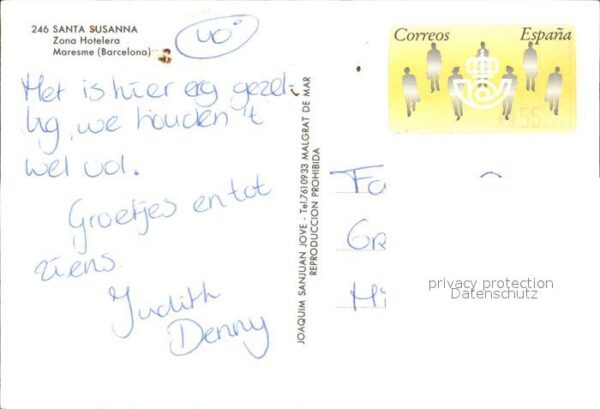 246 SANTA SUSANNA
Zona Hotelera
Maresme (Barcelona)
40°
Het is hier erg gezel-
lig, we houden 't
wel vol.
Groetjes en tot
ziens.
Judith
Denny
JOAQUIM SANJUAN JOVE - Tel.7610933 MALGRAT DE MAR
REPRODUCCION PROHIBIDA
Correos España
55
Fa
Gr
Hi
privacy protection
Datenschutz